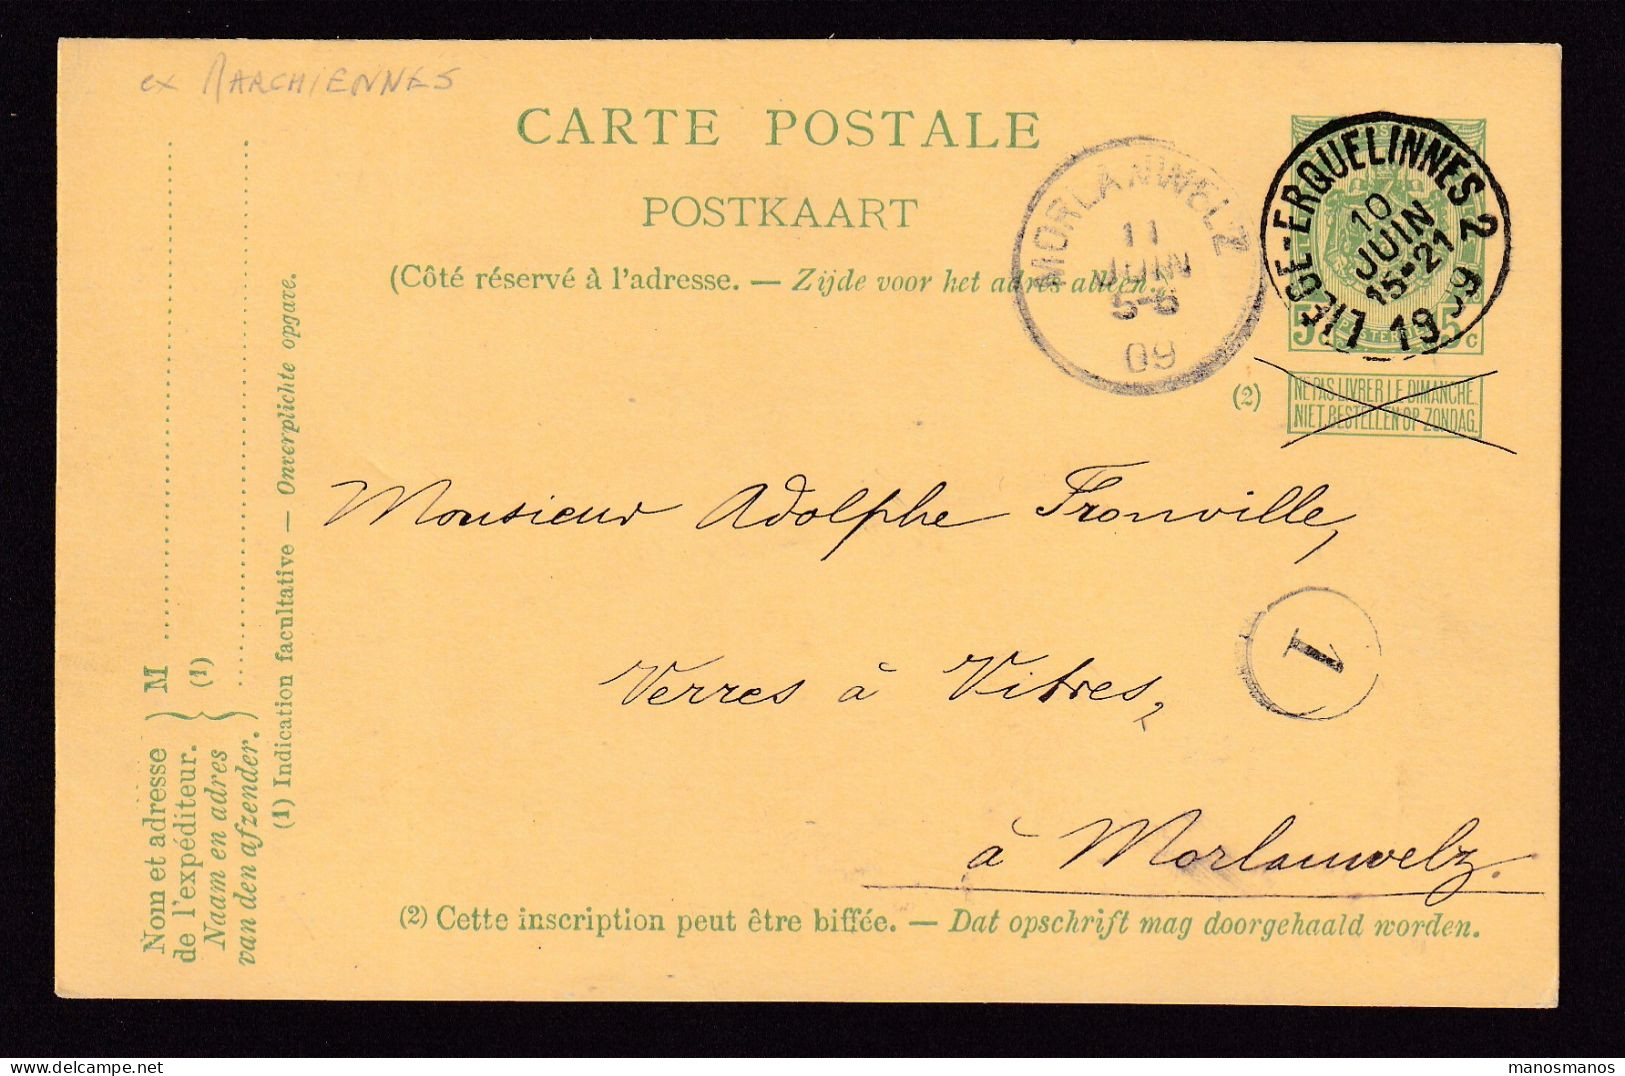 ex MARCHIENNES
CARTE POSTALE
POSTKAART
(Côté réservé à l'adresse. — Zijde voor het adres alleen.)
MORLANWELZ
11
JUIN
5-6
09
LIEGE-ERQUELINNES 2
10
JUIN
15-21
1909
5c 5c
(2)
NE PAS LIVRER LE DIMANCHE.
NIET BESTELLEN OP ZONDAG.
Monsieur Adolphe Fronville,
Verres à Vitres,
1
à Morlanwelz.
(2) Cette inscription peut être biffée. — Dat opschrift mag doorgehaald worden.
Nom et adresse
de l'expéditeur.
Naam en adres
van den afzender.
M
(1)
(1) Indication facultative — Onverplichte opgave.
manosmanos